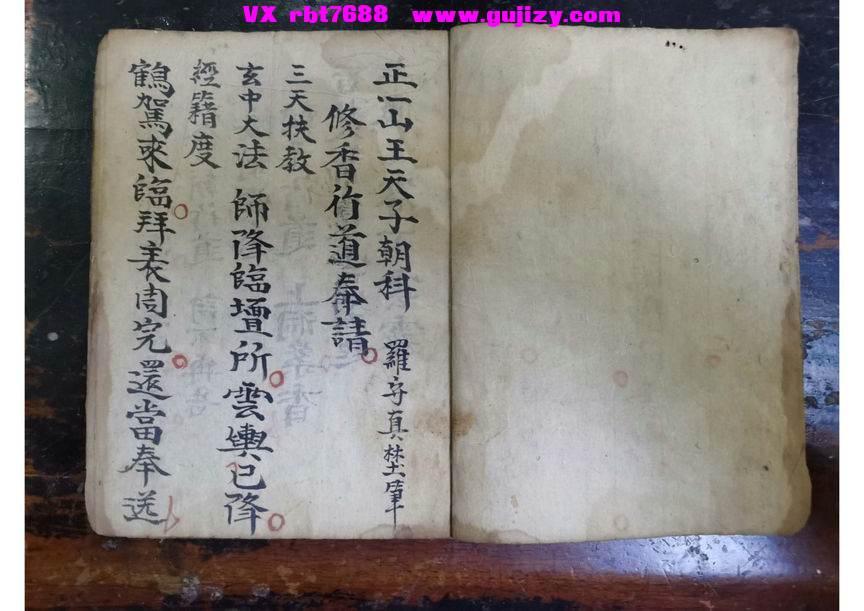 VX rbt7688 www.gujizy.com
正一山王天子朝科 羅守真焚筆
修香行道奉請
三天扶教
玄中大法 師降臨壇所雲輿已降
經籍度
鶴駕來臨拜表周完還當奉送